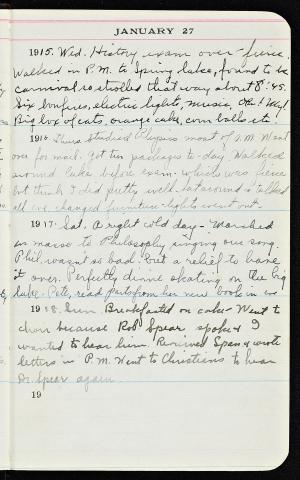 JANUARY 27
1915. Wed. History exam over - fierce.
Walked in P.M. to Spring lake, found to be
carnival so strolled that way about 8:45.
Six bonfires, electric lights, music, Oh! My!
Big box of eats, orange cake, corn balls etc!
1916 Thurs Studied Physics most of A.M. Went
one for mail. Got ten packages to-day. Walked
around lake before exam - which was fierce
but think I did pretty well. Sat around & talked
all eve, changed furniture - lights went out.
1917. Sat. A right cold day - Marched
en masse to Philosophy singing our song.
Phil. wasn't so bad but a relief to have
it over. Perfectly divine skating on the big
lake. Pete, read part of her new book in
1918. Sun. Breakfasted on cake. Went to
church because Rob Spear spoke & I
wanted to hear him. Reviewed Span & wrote
letters in P.M. Went to Christians to hear
Dr. Spear again.
19